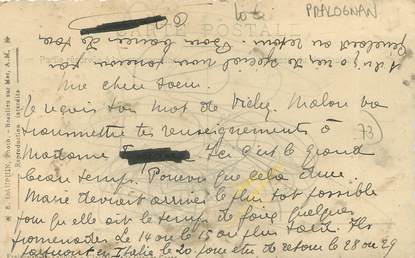 PRALOGNAN
CARTE POSTALE
Il n'y a rien de spécial nous pensons
Bons baisers de
Ma chère soeur.
Je reçois ton mot de Vichy. Malou va
transmettre tes renseignements à
Madame Ici c'est le grand
beau temps. Pourvu que cela dure
Marie devrait arriver le plus tôt possible
pour qu'elle ait le temps de faire quelques
promenades. Le 14 ou le 15 au plus tard. Ils
partiront en Italie le 20 pour être de retour le 28 ou 29
73
Reproduction interdite